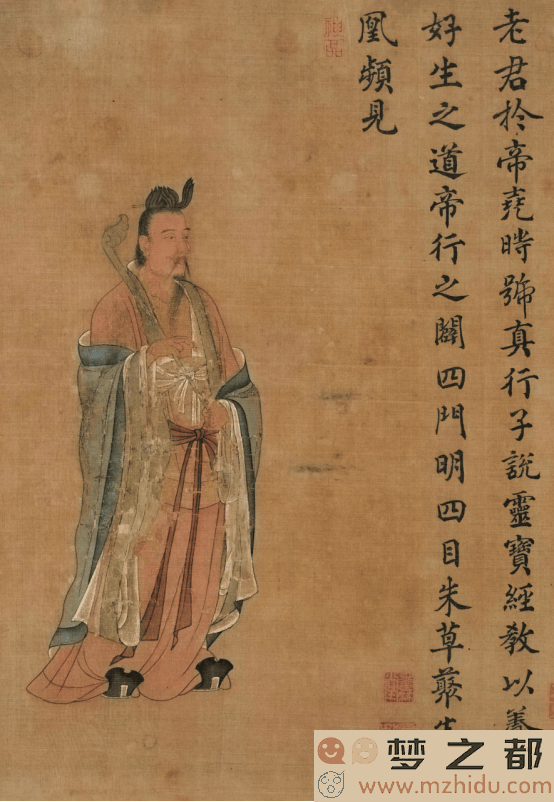 老君扵帝堯時號真行子說靈寶經教以善
好生之道帝行之闢四門明四目朱草藂生
凰頻見
梦之都
www.mzhidu.com